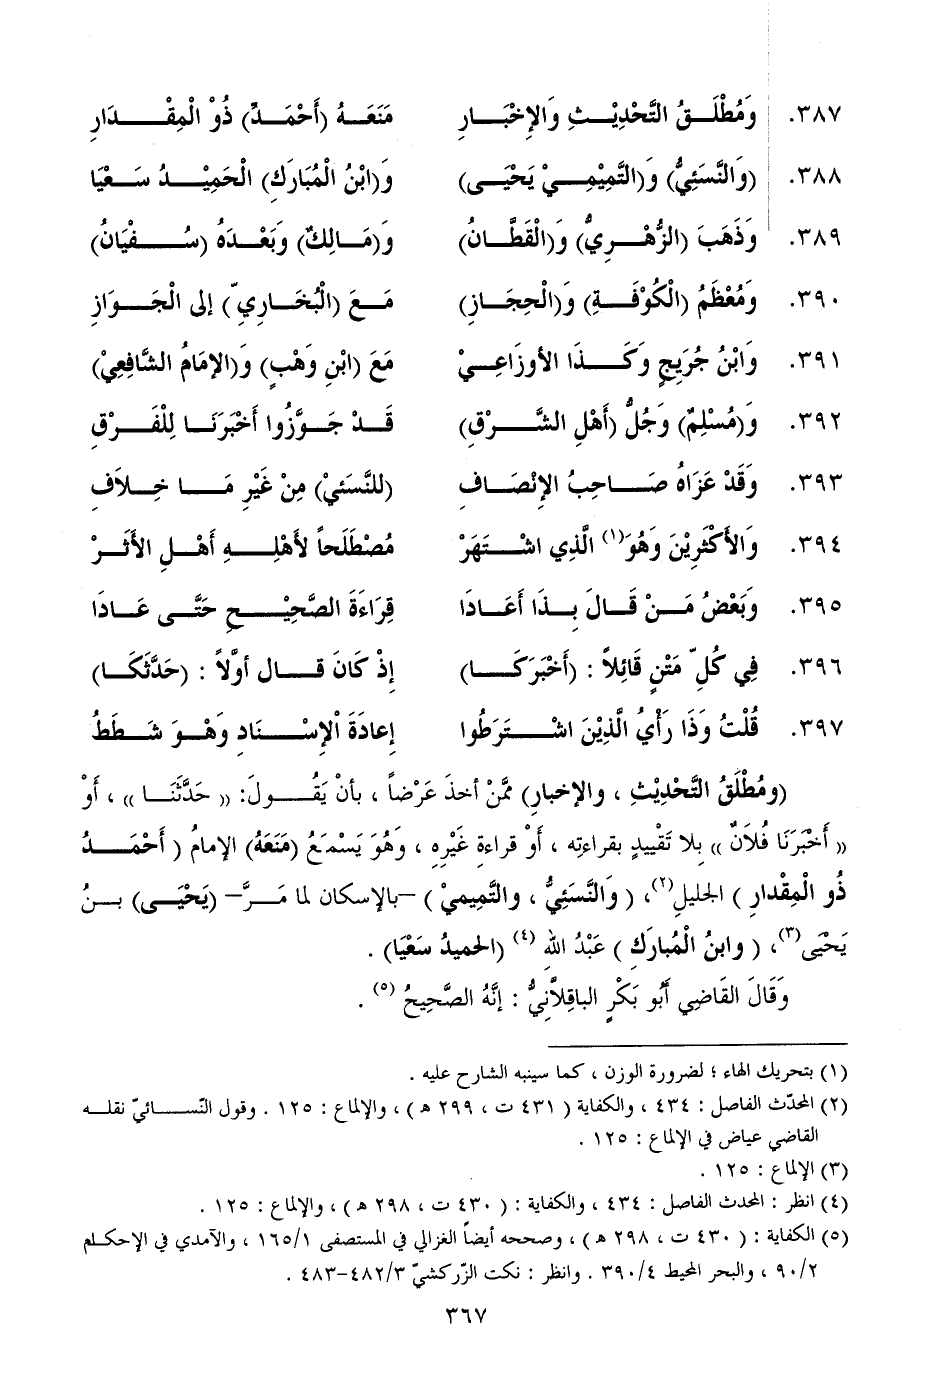 ٣٨٧. وَمُطْلَقُ التَّحْدِيْثِ وَالإِخْبَارِ مَنَعَهُ (أَحْمَدُ) ذُوْ الْمِقْدَارِ
٣٨٨. (وَالنَّسَئِيُّ) وَ(التَّمِيْمِيْ يَحْيَى) وَ(ابْنُ الْمُبَارَكِ) الْحَمِيْدُ سَعْيَا
٣٨٩. وَذَهَبَ (الزُّهْرِيُّ) وَ(الْقَطَّانُ) وَ(مَالِكٌ) وَبَعْدَهُ (سُفْيَانُ)
٣٩٠. وَمُعْظَمُ (الْكُوْفَةِ) وَ(الْحِجَازِ) مَعَ (الْبُخَارِيِّ) إِلى الْجَوَازِ
٣٩١. وَابْنُ جُرَيجٍ وَكَذَا الأوزَاعِيْ مَعَ (ابْنِ وَهْبٍ) وَ(الإمَامُ الشَّافِعِيْ)
٣٩٢. وَ(مُسْلِمٌ) وَجُلُّ (أَهْلِ الشَّرْقِ) قَدْ جَوَّزُوا أَخْبَرَنَا لِلْفَرْقِ
٣٩٣. وَقَدْ عَزَاهُ صَاحِبُ الإِنْصَافِ (للنَّسَئيْ) مِنْ غَيْرِ مَا خِلَافِ
٣٩٤. وَالأَكْثَرِيْنَ وَهُوَ(١) الَّذِي اشْتَهَرْ مُصْطَلَحاً لأَهْلِهِ أَهْلِ الأَثَرْ
٣٩٥. وَبَعْضُ مَنْ قَالَ بِذَا أَعَادَا قِرَاءَةَ الصَّحِيْحِ حَتَّى عَادَا
٣٩٦. فِي كُلِّ مَتْنٍ قَائِلاً : (أَخْبَرَكَا) إِذْ كَانَ قَال أوَّلاً : (حَدَّثَكَا)
٣٩٧. قُلْتُ وَذَا رَأْيُ الَّذِيْنَ اشْتَرَطُوا إعادَةَ الْإِسْنَادِ وَهْوَ شَطَطُ
(ومُطْلَقُ التَّحْدِيْثِ ، والإخبارِ) مِمَّنْ أخذَ عَرْضاً ، بأنْ يَقُولَ: (( حَدَّثَنَا )) ، أَوْ
(( أَخْبَرَنَا فُلَانٌ )) بِلا تَقْييدٍ بقراءتِه ، أَوْ قراءةِ غَيْرِه ، وَهُوَ يَسْمَعُ (مَنَعَهُ) الإمامُ ( أَحْمَدُ
ذُو الْمِقْدارِ ) الجليلِ(٢)، ( وَالنَّسَئِيُّ ، والتَّمِيميْ ) –بالإسكان لما مَرَّ– (يَحْيَى) بنُ
يَحْيَى(٣)، ( وابنُ الْمُبارَكِ ) عَبْدُ اللهِ (٤) (الحميدُ سَعْيَا) .
وَقَالَ القَاضِي أَبُو بَكْرٍ الباقِلاَّنِيُّ : إنَّهُ الصَّحِيحُ (٥) .
(١) بتحريك الهاء ؛ لضرورة الوزن ، كما سينبه الشارح عليه .
(٢) المحدّث الفاصل : ٤٣٤ ، والكفاية ( ٤٣١ ت ، ٢٩٩ هـ ) ، والإلماع : ١٢٥ . وقول النّسائيّ نقله
القاضي عياض في الإلماع : ١٢٥ .
(٣) الإلماع : ١٢٥ .
(٤) انظر : المحدث الفاصل : ٤٣٤ ، والكفاية : ( ٤٣٠ ت ، ٢٩٨ هـ ) ، والإلماع : ١٢٥ .
(٥) الكفاية : ( ٤٣٠ ت ، ٢٩٨ هـ ) ، وصححه أيضاً الغزالي في المستصفى ١٦٥/١ ، والآمدي في الإحكام
٩٠/٢ ، والبحر المحيط ٣٩٠/٤ . وانظر : نكت الزّركشيّ ٤٨٢/٣-٤٨٣ .
٣٦٧